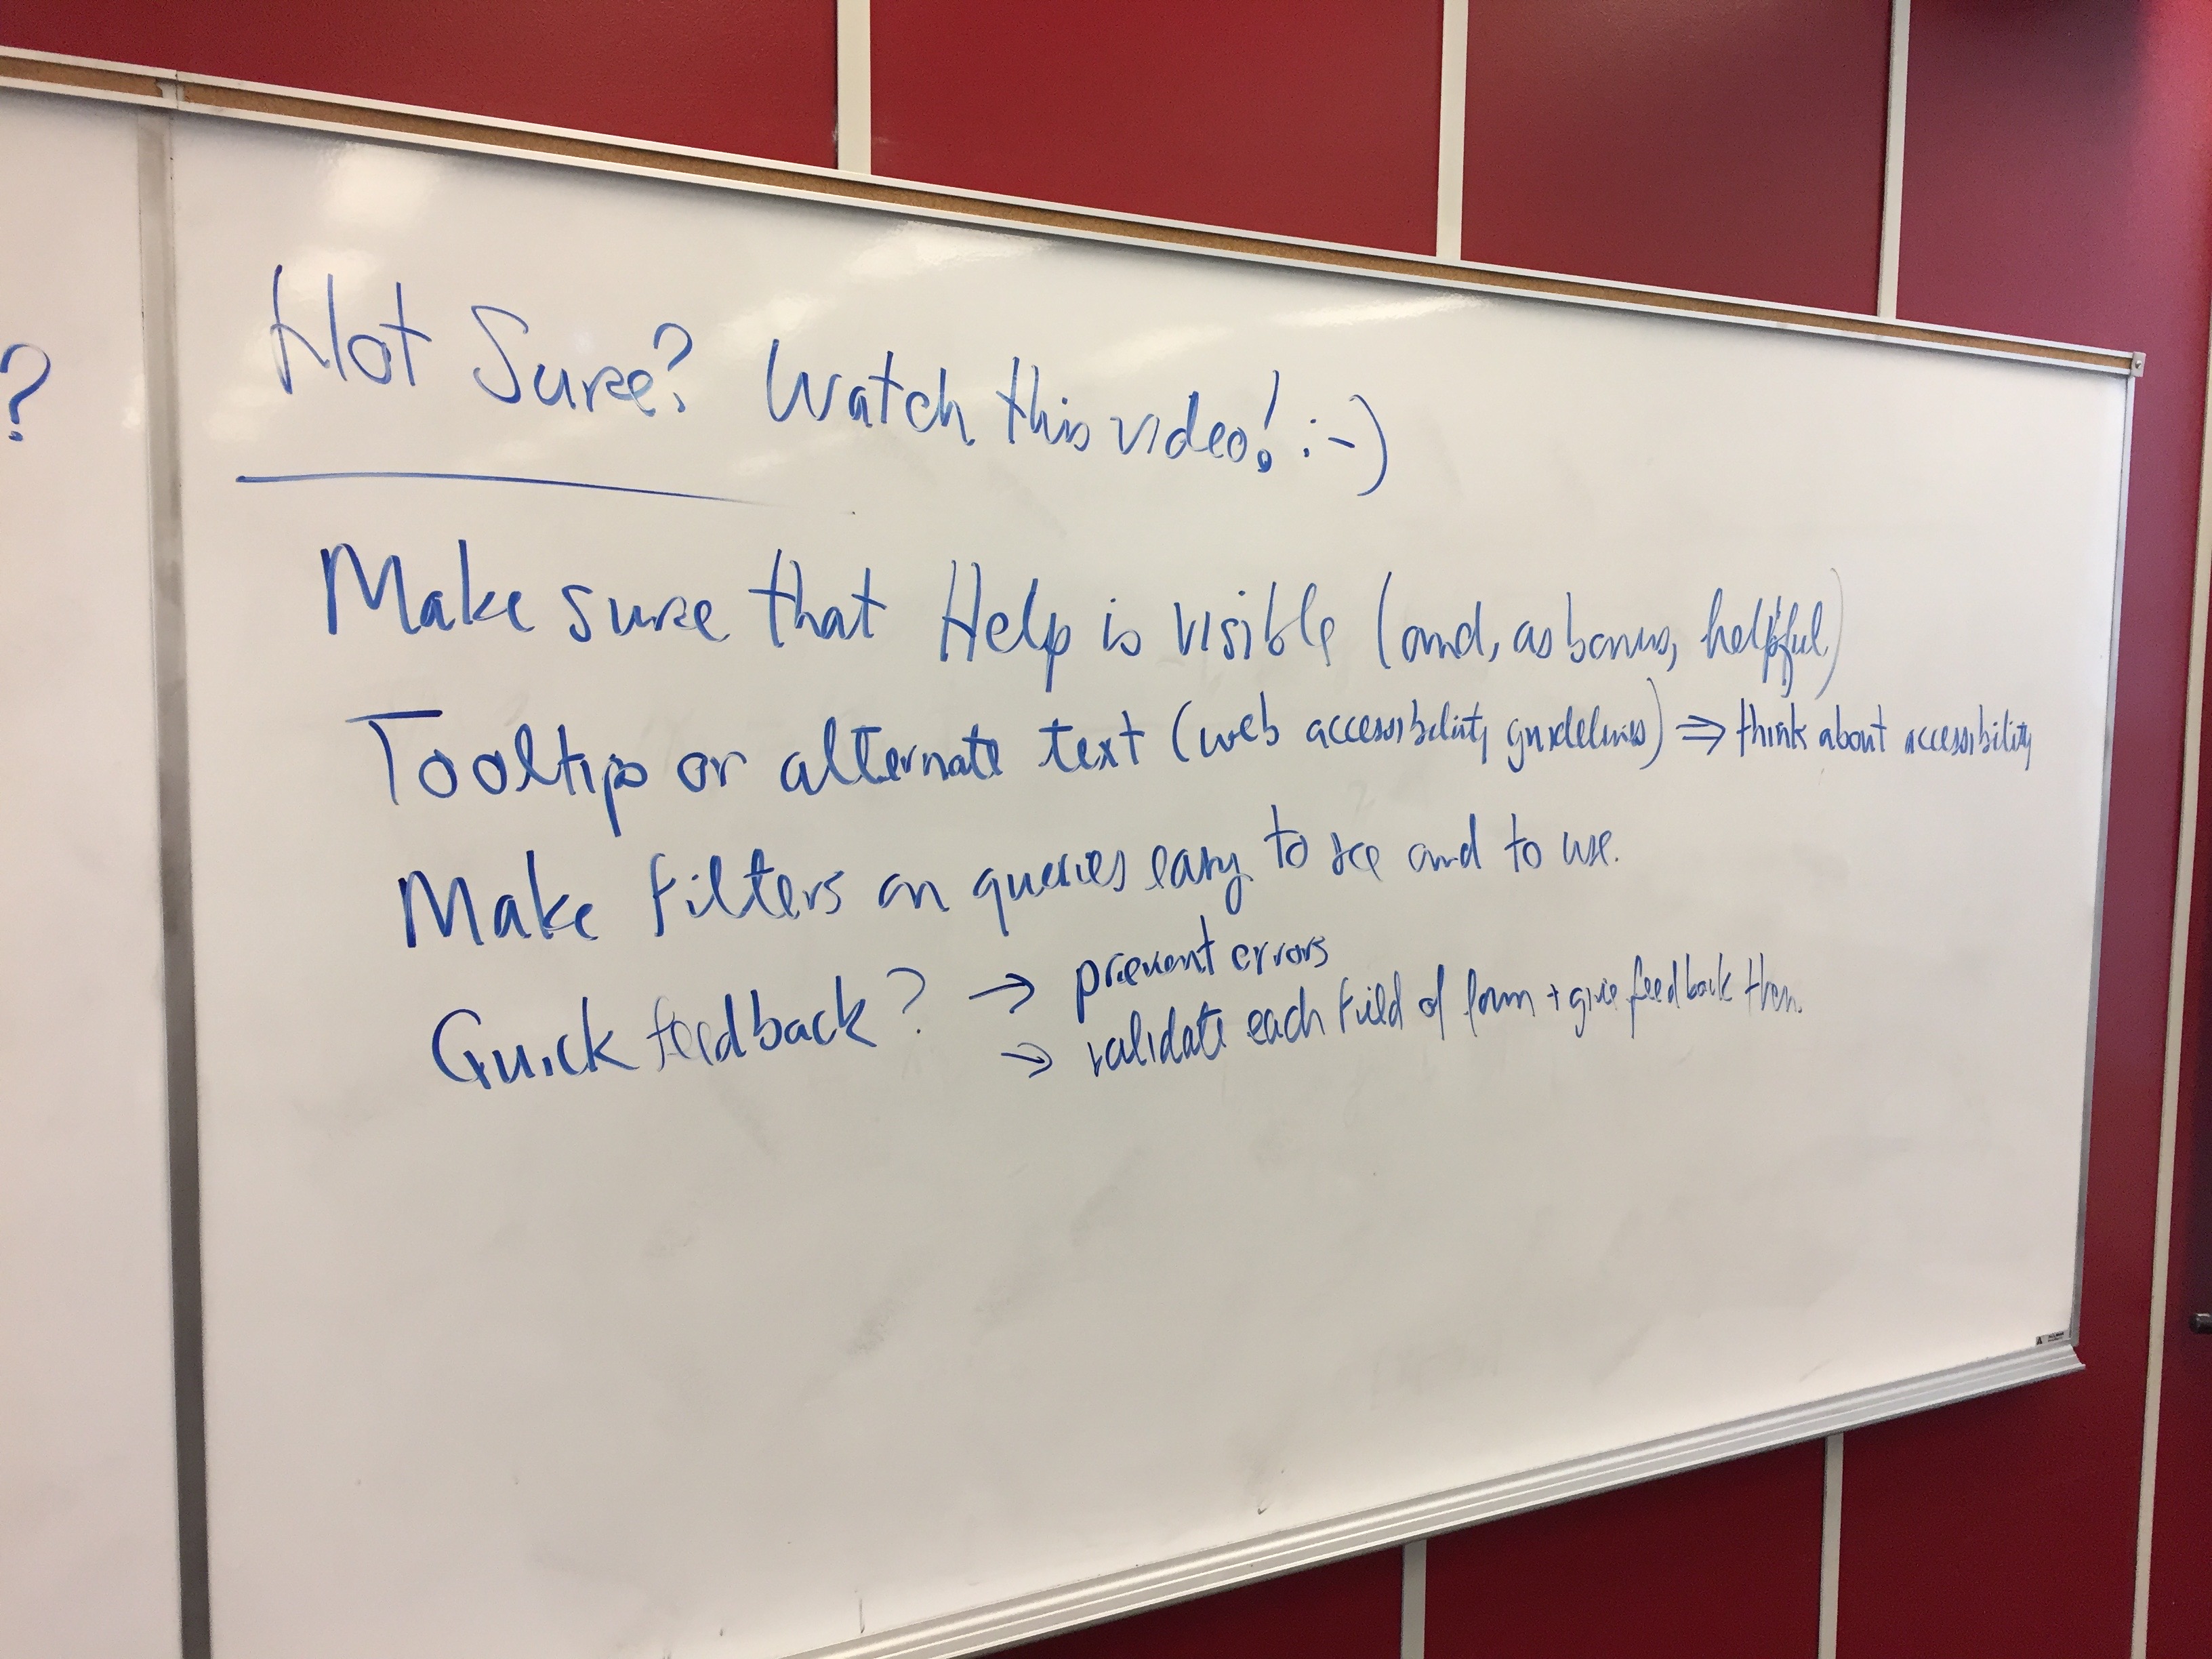 ?
Not Sure? Watch this video! :-)
Make sure that Help is visible (and, as bonus, helpful)
Tooltip or alternate text (web accessibility guidelines) ⇒ think about accessibility
Make filters on queries easy to see and to use.
Quick feedback? → prevent errors
→ validate each field of form + give feedback then.